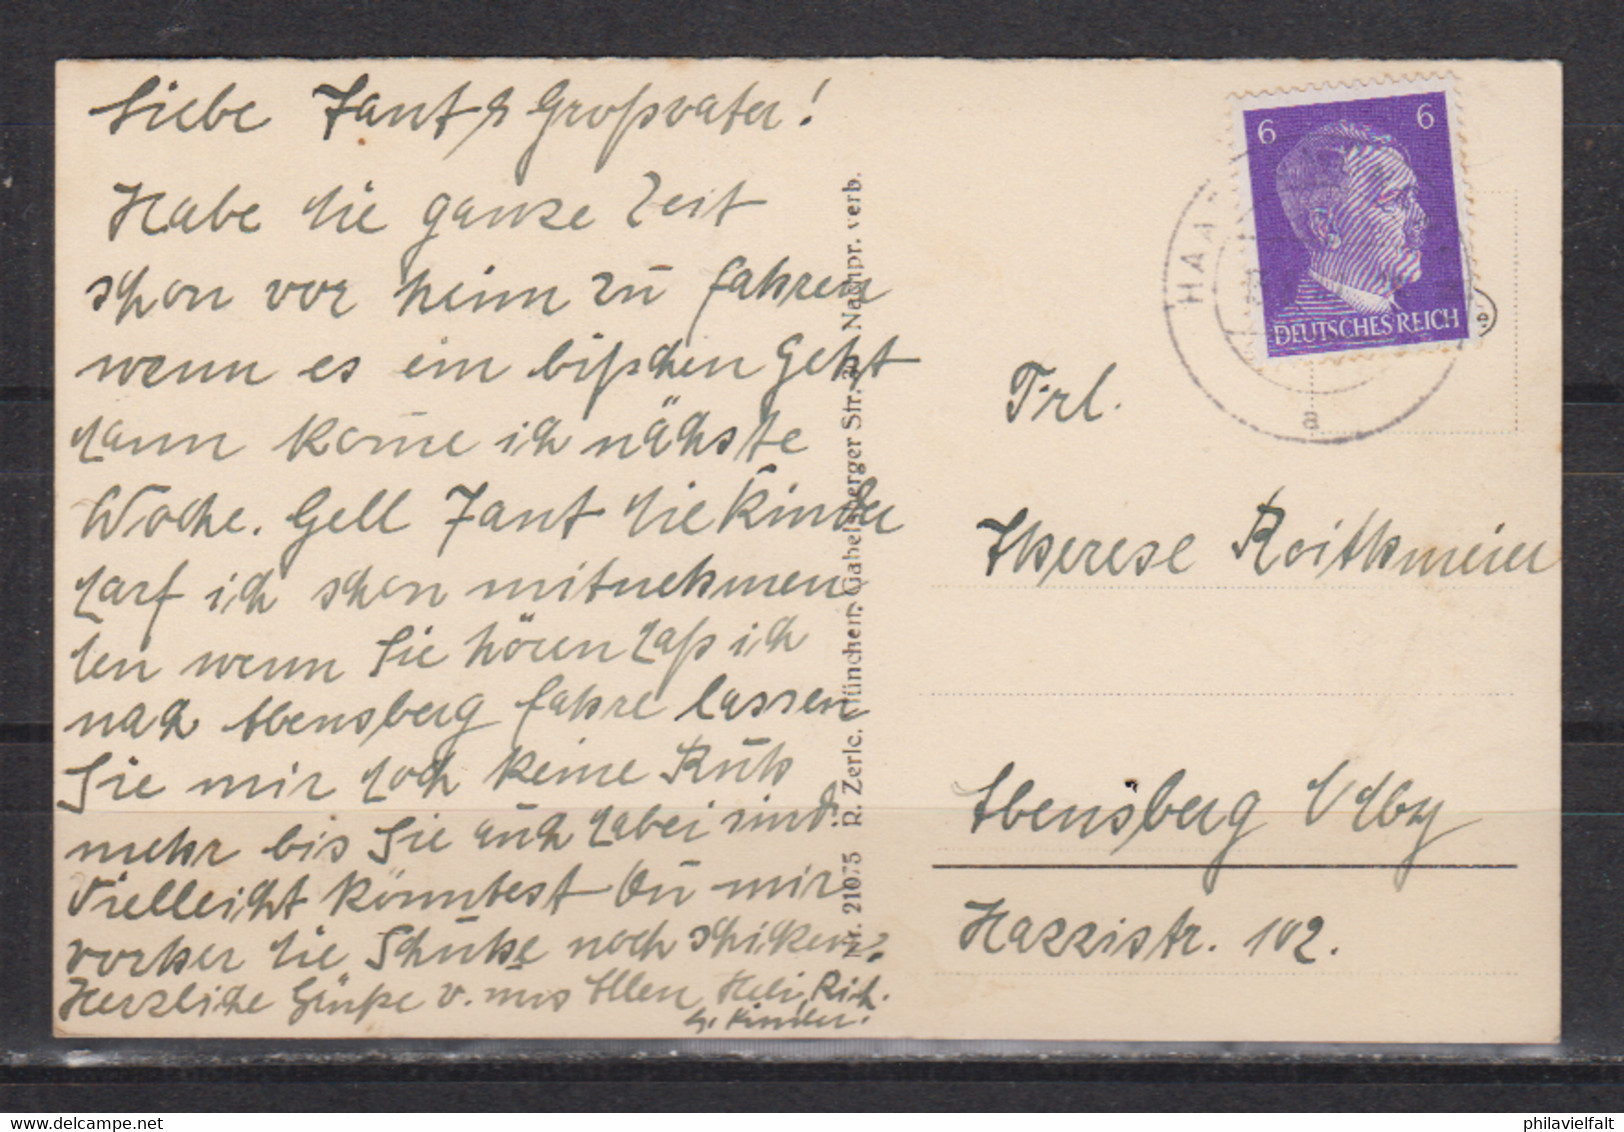 Liebe Tant & Großvater!
Habe die ganze Zeit
schon vor heim zu fahren
wenn es ein bißchen geht
dann kome ich nächste
Woche. Gell Tant die Kinder
darf ich schon mitnehmen
den wenn Sie hören daß ich
nach Abensberg fahre lassen
Sie mir doch keine Ruh
mehr bis Sie auch dabei sind.
Vielleicht könntest Du mir
vorher die Schuhe noch schicken?
Herzliche Grüße v. uns Allen, Heli, Rich.
u. Kinder.
Nr. 21075 R. Zerle, München, Gabelsberger Str. Nachpr. verb.
6 6
DEUTSCHES REICH
HAA
a
Frl.
Therese Roithmeier
Abensberg
Hazzistr. 102.
philavielfalt
delcampe.net